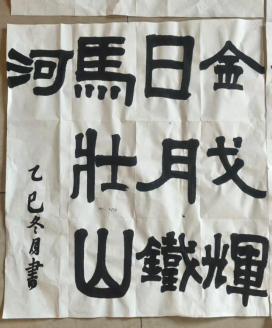 金戈輝
日月鐵
馬壯山
河
乙巳冬月書